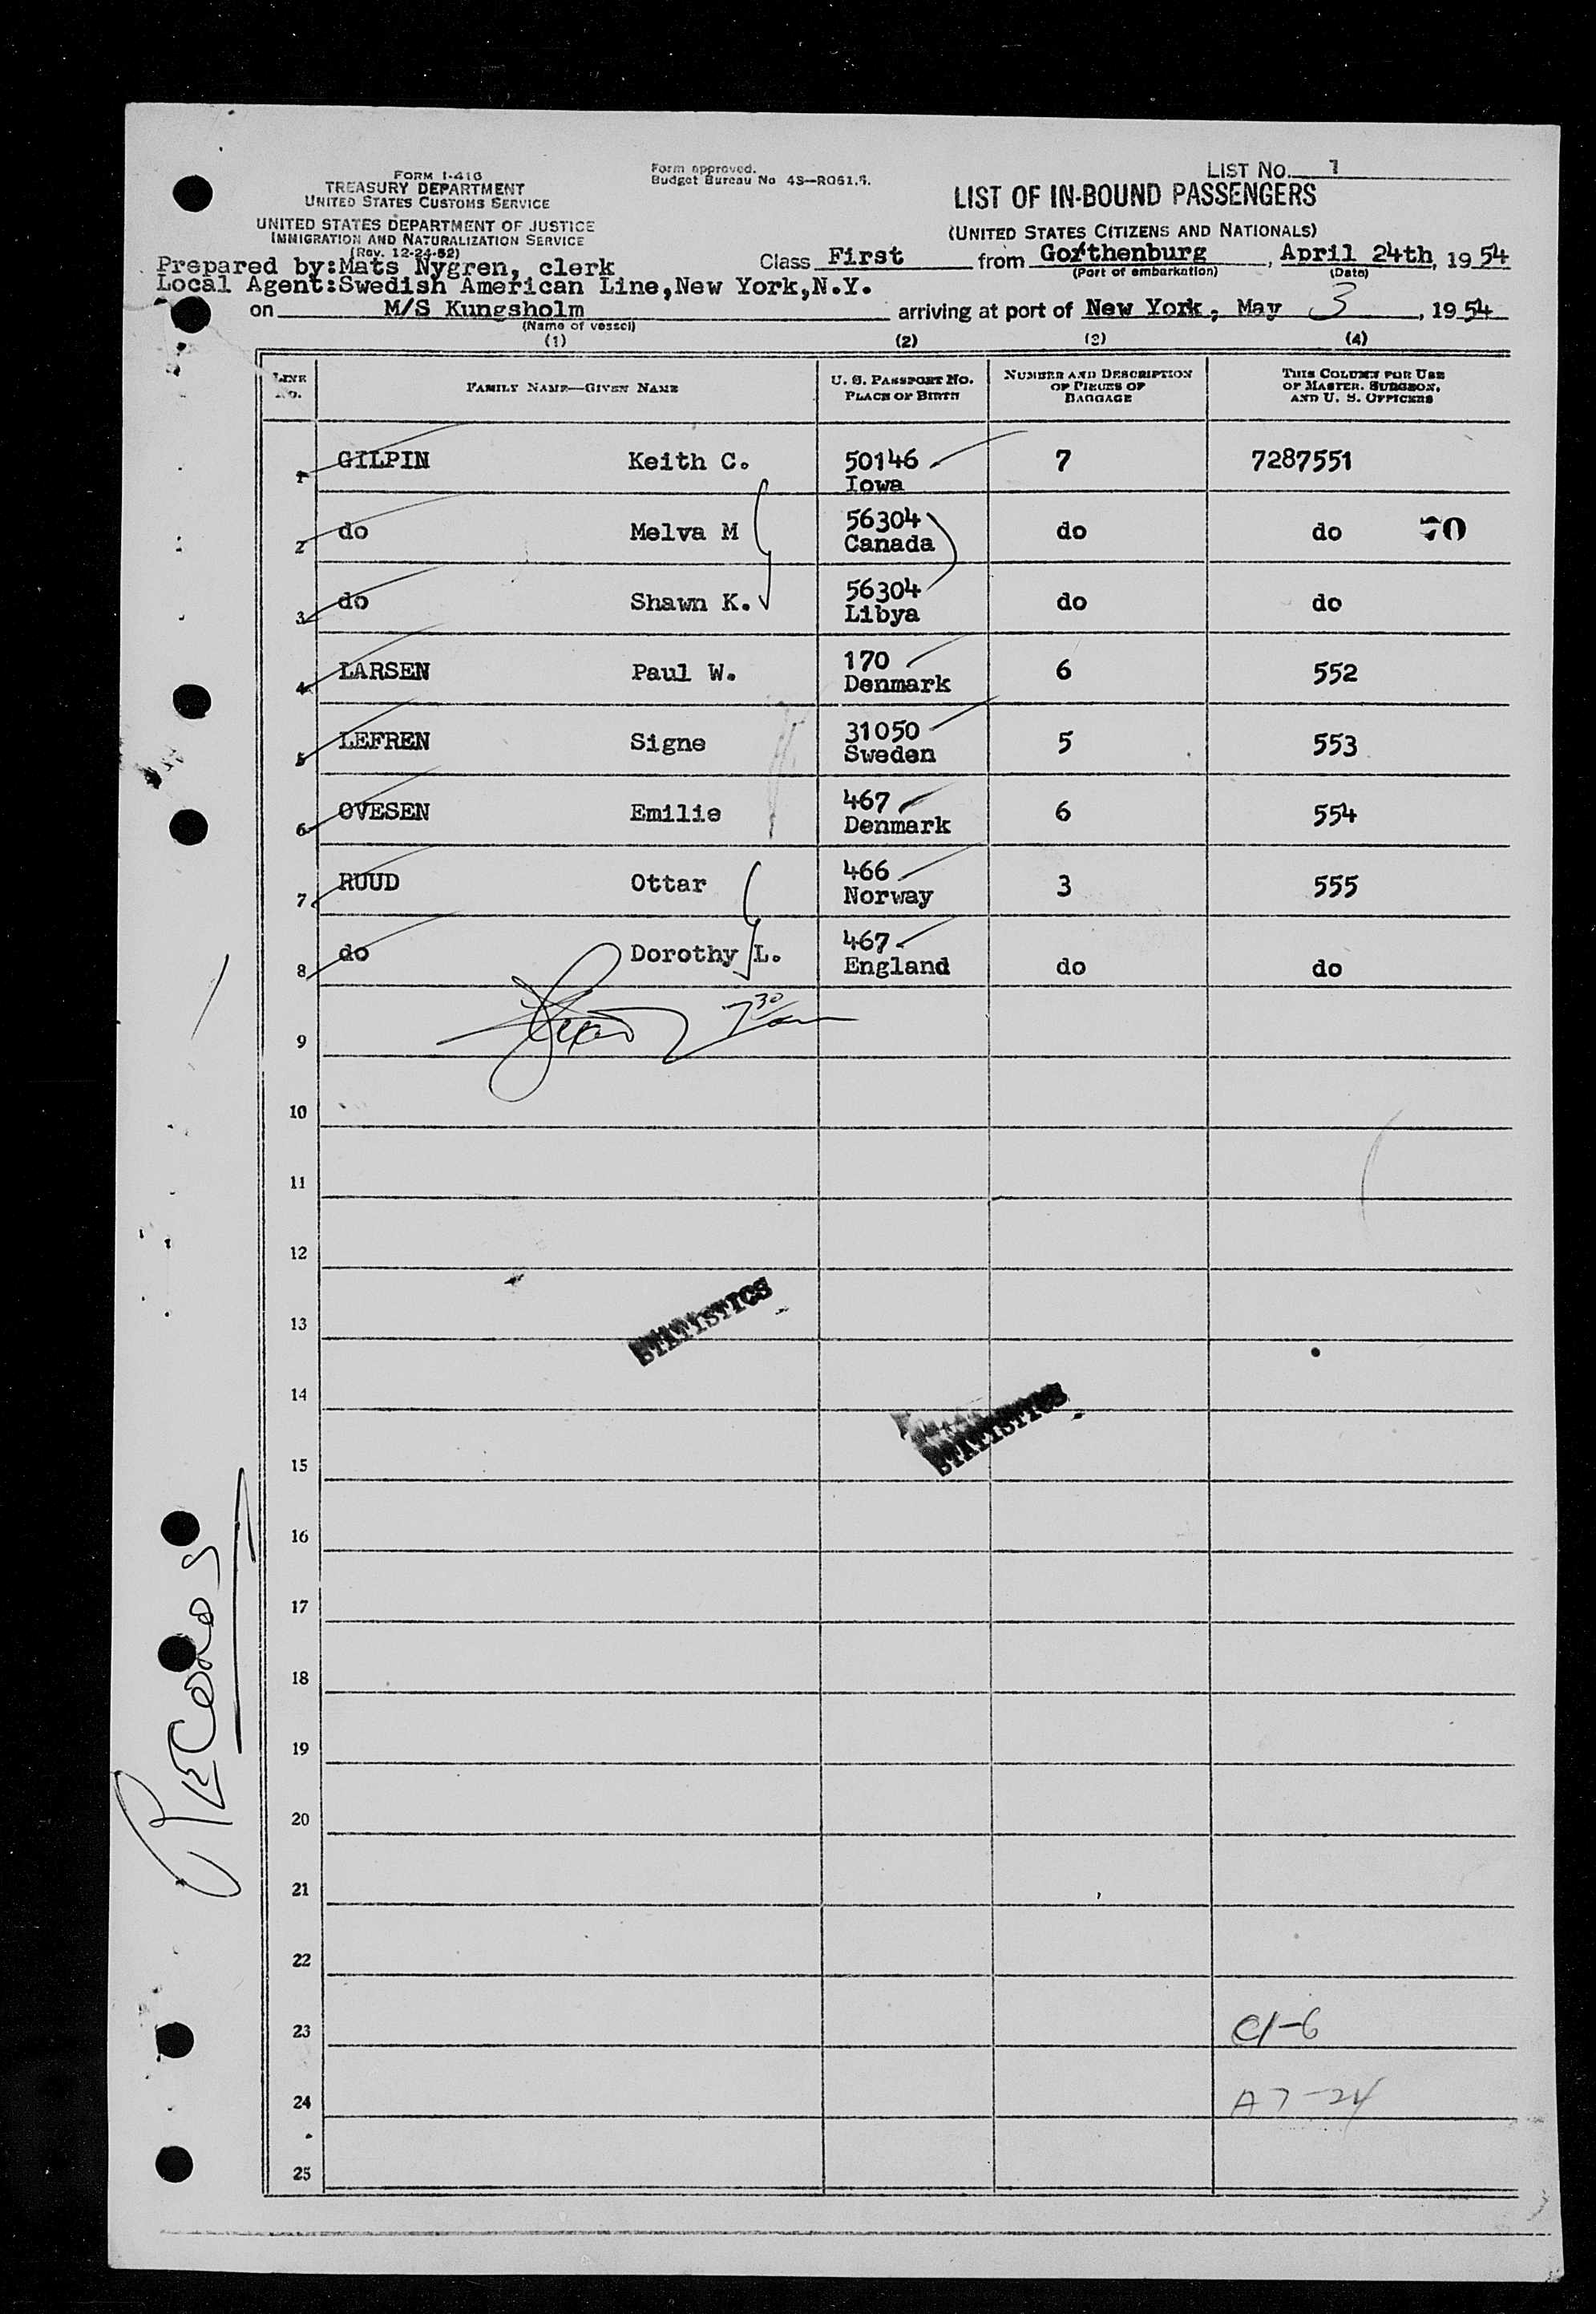 FORM I-416
TREASURY DEPARTMENT
UNITED STATES CUSTOMS SERVICE
UNITED STATES DEPARTMENT OF JUSTICE
IMMIGRATION AND NATURALIZATION SERVICE
(Rev. 12-24-52)
Form approved.
Budget Bureau No 43—R061.5.
LIST No. 1
LIST OF IN-BOUND PASSENGERS
(UNITED STATES CITIZENS AND NATIONALS)
Prepared by:Mats Nygren, clerk
Class First from Gothenburg, April 24th, 1954
(Port of embarkation) (Date)
Local Agent:Swedish American Line,New York,N.Y.
on M/S Kungsholm arriving at port of New York, May 3, 1954
(Name of vessel)
(1) (2) (3) (4)
LINE No. FAMILY NAME—GIVEN NAME U. S. PASSPORT NO. PLACE OF BIRTH NUMBER AND DESCRIPTION OF PIECES OF BAGGAGE THIS COLUMN FOR USE OF MASTER, SURGEON, AND U. S. OFFICERS
1 GILPIN Keith C. 50146 Iowa 7 7287551
2 do Melva M 56304 Canada do do 70
3 do Shawn K. 56304 Libya do do
4 LARSEN Paul W. 170 Denmark 6 552
5 LEFREN Signe 31050 Sweden 5 553
6 OVESEN Emilie 467 Denmark 6 554
7 RUUD Ottar 466 Norway 3 555
8 do Dorothy L. 467 England do do
9
10
11
12
13
STATISTICS
14
STATISTICS
15
16
17
18
19
20
21
22
23 C1-6
24 A7-24
25
RECORDS